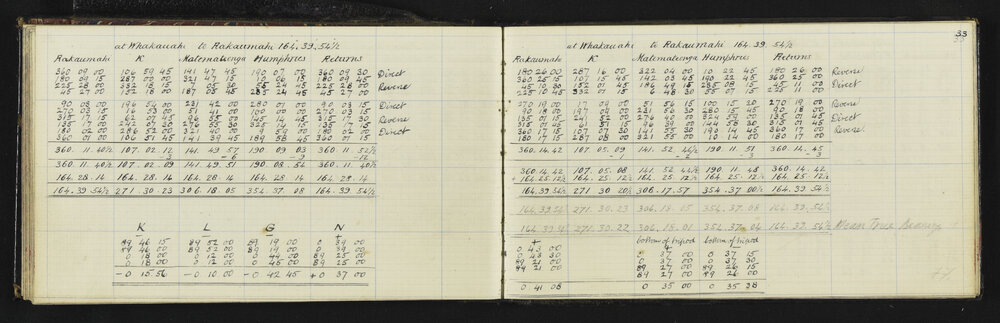 at Whakauahi to Rakaumahi 164. 39. 54½
Rakaumahi K Matemateonga Humphries Returns
360 09 00 106 59 45 141 47 45 190 07 00 360 09 30 Direct
180 09 15 287 00 00 321 47 15 10 06 15 180 09 45
225 28 00 332 15 15 05 30 55 24 45 225 28 00 Reverse
45 27 00 152 18 00 187 05 45 24 45 00
90 03 00 196 54 00 231 42 00 280 01 00 90 03 15 Direct
51 41 00
315 17 15 62 07 45 96 55 00 145 14 45 315 17 30 Reverse
135 242 276 55 30 135
180 02 00 286 52 00 321 40 00 9 59 00 180 02 00 Direct
360 00 00 106 51 45 141 39 45 189 58 45 360 01 15
360. 11. 40½ 107. 02. 12 141. 49. 57 190. 09. 03 360. 11. 52½
-3 -6 -9 -12
360. 11. 40½ 107. 02. 09 141. 49. 51 190. 08. 54 360. 11. 40½
164. 28. 14 164. 28. 14 164. 28. 14 164. 28. 14 164. 28. 14
164. 39. 54½ 271. 30. 23 306. 18. 05 354. 37. 08 164. 39. 54½
K L G N
89 46 15 89 52 00 89 19 00 0 39 00
89 46 00 89 52 00 89 19 00 0 39 00
0 18 00 0 12 00 0 44 00 89 25 00
0 18 00 0 12 00 0 45 00 89 25 00
-0 15 56 -0 10 00 -0 42 45 +0 37 00
33
at Whakauahi to Rakaumahi 164. 39. 54½
Rakaumahi K Matemateonga Humphries Returns
180 26 00 287 16 00 322 04 00 10 22 45 180 26 00 Reverse
360 25 15 107 15 45 142 03 45 190 22 45 360 25 00
45 10 30 152 01 45 186 49 15 235 08 15 11 00 Direct
225 10 45 332 01 15 48 30 07 15 225 11 00
270 19 00 17 09 00 51 56 15 100 15 30 270 19 00 Reverse
90 18 00 197 09 00 231 56 30 280 15 45 90 18 00
135 01 15 241 52 00 276 40 00 324 59 00 135 01 45 Direct
315 01 45 61 51 96 39 00 144 58 30 315 01 45
360 17 15 107 07 30 141 55 30 190 14 45 360 17 00 Reverse
180 17 15 287 08 00 321 55 00 10 14 00 180 17 00
360. 14. 42 107. 05. 09 141. 52. 190. 11. 51 360. 14. 45
-1 -2 -3 -3
360. 14. 42 107. 05. 08 141. 52. 190. 11. 48 360. 14. 42
+ 164. 25. 12½ 164. 25. 12½ 164. 25. 12½ 164. 25. 12½ 164. 25. 12½
164. 39. 54½ 271 30 20½ 306. 17. 57 354. 37. 00½ 164. 39. 54½
164. 39. 54½ 271. 30. 23 306. 18. 354. 37. 08 164. 39. 54½
164. 39. 271. 30. 22 306. 18. 01 37. 04 164. 39. 54½ Mean True Bearings
+ bottom of tripod bottom of tripod
0 43 00 0 37 00 0 37 15
0 43 30 0 37 00 0 37 30
89 21 00 89 27 00 89 26 15
89 21 00 89 27 00 89 26 00
0 41 08 0 35 00 0 35 38